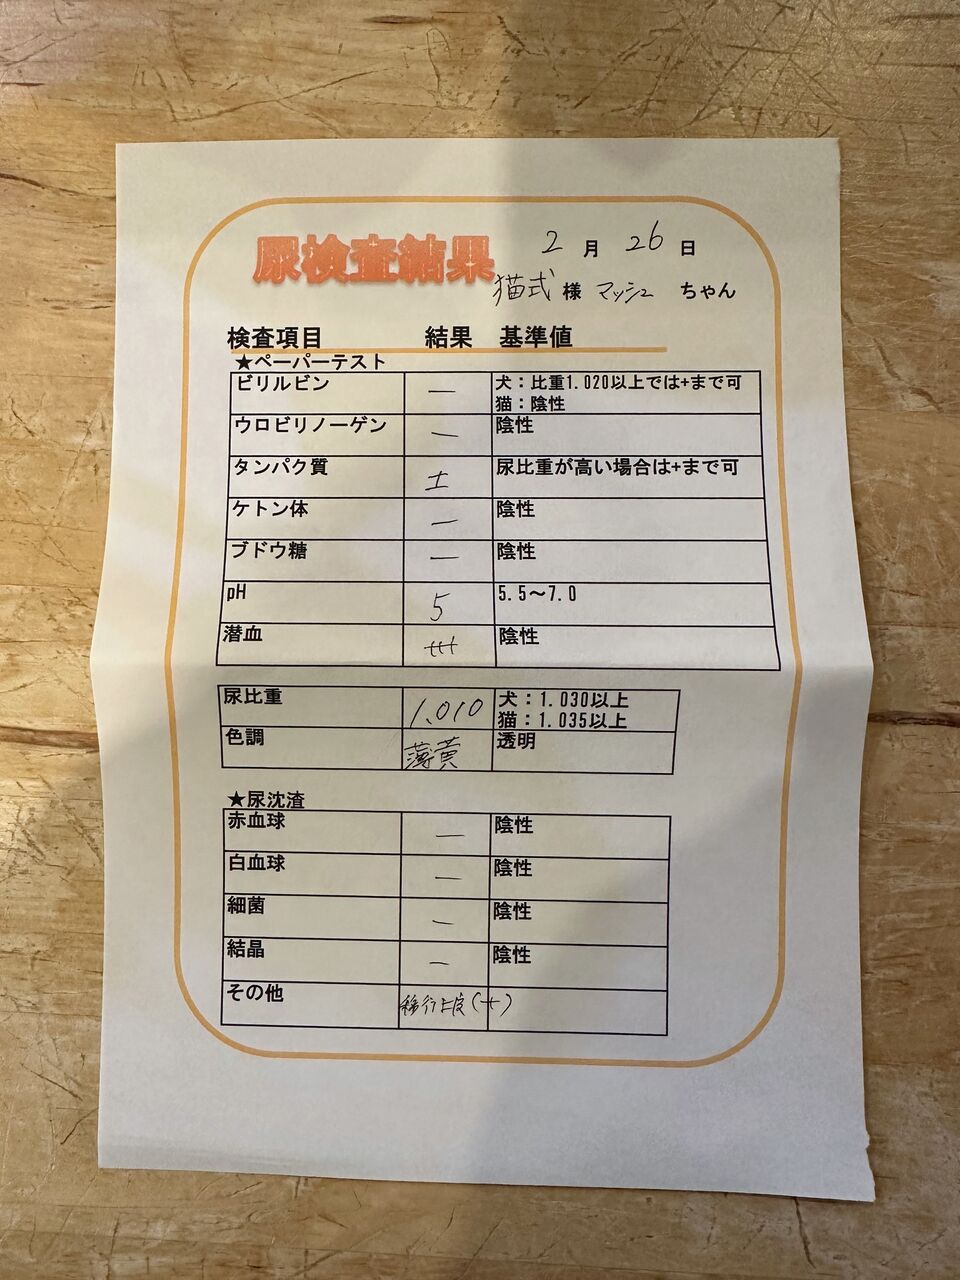 尿検査結果 2月26日
猫式様 マッシュ ちゃん
検査項目 結果 基準値
★ペーパーテスト
ビリルビン － 犬：比重1.020以上では+まで可
猫：陰性
ウロビリノーゲン － 陰性
タンパク質 ± 尿比重が高い場合は+まで可
ケトン体 － 陰性
ブドウ糖 － 陰性
pH 5 5.5〜7.0
潜血 +++ 陰性
尿比重 1.010 犬：1.030以上
猫：1.035以上
色調 薄黄 透明
★尿沈渣
赤血球 － 陰性
白血球 － 陰性
細菌 － 陰性
結晶 － 陰性
その他 移行上皮